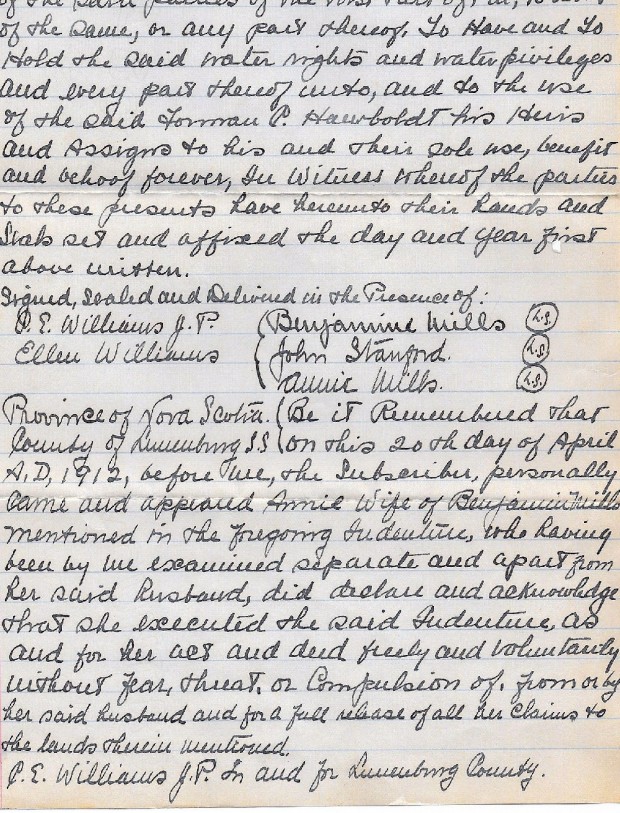 of the same, or any part thereof, To Have and To
Hold the said water rights and water privileges
and every part thereof unto, and to the use
of the said Forman P. Hawboldt his Heirs
and Assigns to his and their sole use, benefit
and behoof forever, In Witness whereof the parties
to these presents have hereunto their hands and
Seals set and affixed the day and year first
above written.
Signed, Sealed and Delivered in the Presence of:
P. E. Williams J.P. ( Benjamine Mills L.S.
Ellen Williams ( John Stanford. L.S.
( Annie Mills. L.S.
Province of Nova Scotia. ( Be it Remembered that
County of Lunenburg S.S ( on this 20th day of April
A.D, 1912, before me, the Subscriber, personally
came and appeared Annie Wife of Benjamin Mills
mentioned in the foregoing Indenture, who having
been by me examined separate and apart from
her said husband, did declare and acknowledge
that she executed the said Indenture, as
and for her act and deed freely and voluntarily
without fear, threat, or Compulsion of, from or by
her said husband and for a full release of all her Claims to
the lands therein mentioned.
P. E. Williams J.P. In and for Lunenburg County.